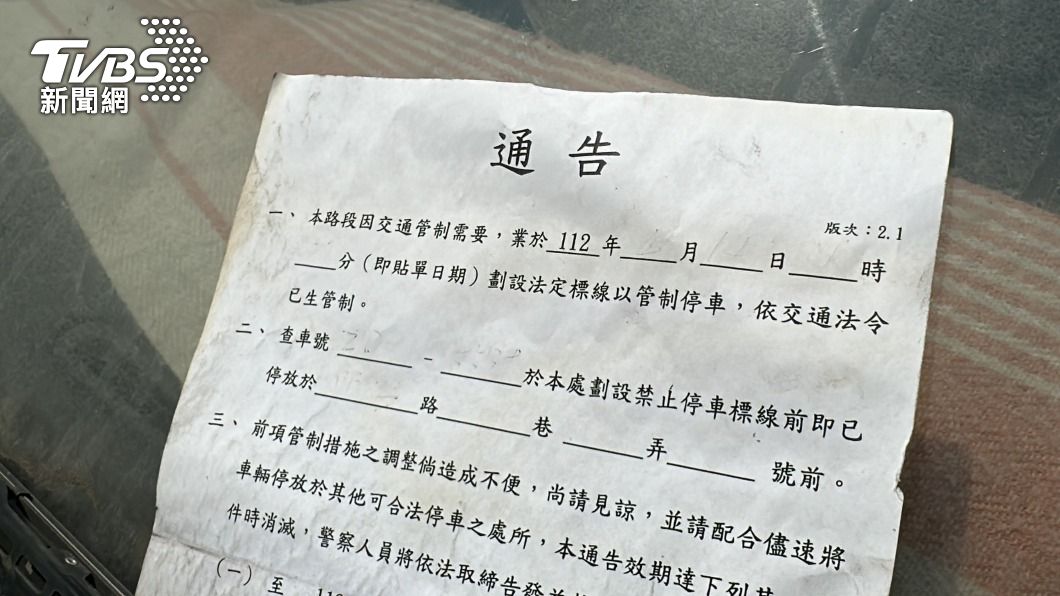 TVBS
新聞網
通告
版次：2.1
一、本路段因交通管制需要，業於 112 年____月____日____時
____分（即貼單日期）劃設法定標線以管制停車，依交通法令
已生管制。
二、查車號____－____於本處劃設禁止停車標線前即已
停放於____路____巷____弄____號前。
三、前項管制措施之調整倘造成不便，尚請見諒，並請配合儘速將
車輛停放於其他可合法停車之處所，本通告效期達下列其
件時消滅，警察人員將依法取締告發
（一）至